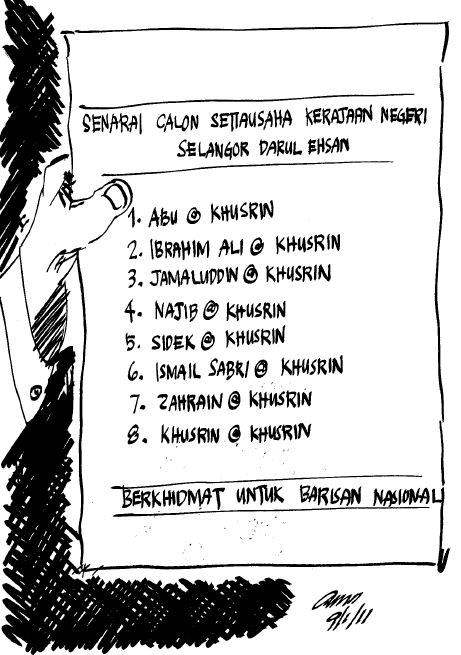 SENARAI CALON SETIAUSAHA KERAJAAN NEGERI
SELANGOR DARUL EHSAN
1. ABU @ KHUSRIN
2. IBRAHIM ALI @ KHUSRIN
3. JAMALUDDIN @ KHUSRIN
4. NAJIB @ KHUSRIN
5. SIDEK @ KHUSRIN
6. ISMAIL SABRI @ KHUSRIN
7. ZAHRAIN @ KHUSRIN
8. KHUSRIN @ KHUSRIN
BERKHIDMAT UNTUK BARISAN NASIONAL
9/1/11